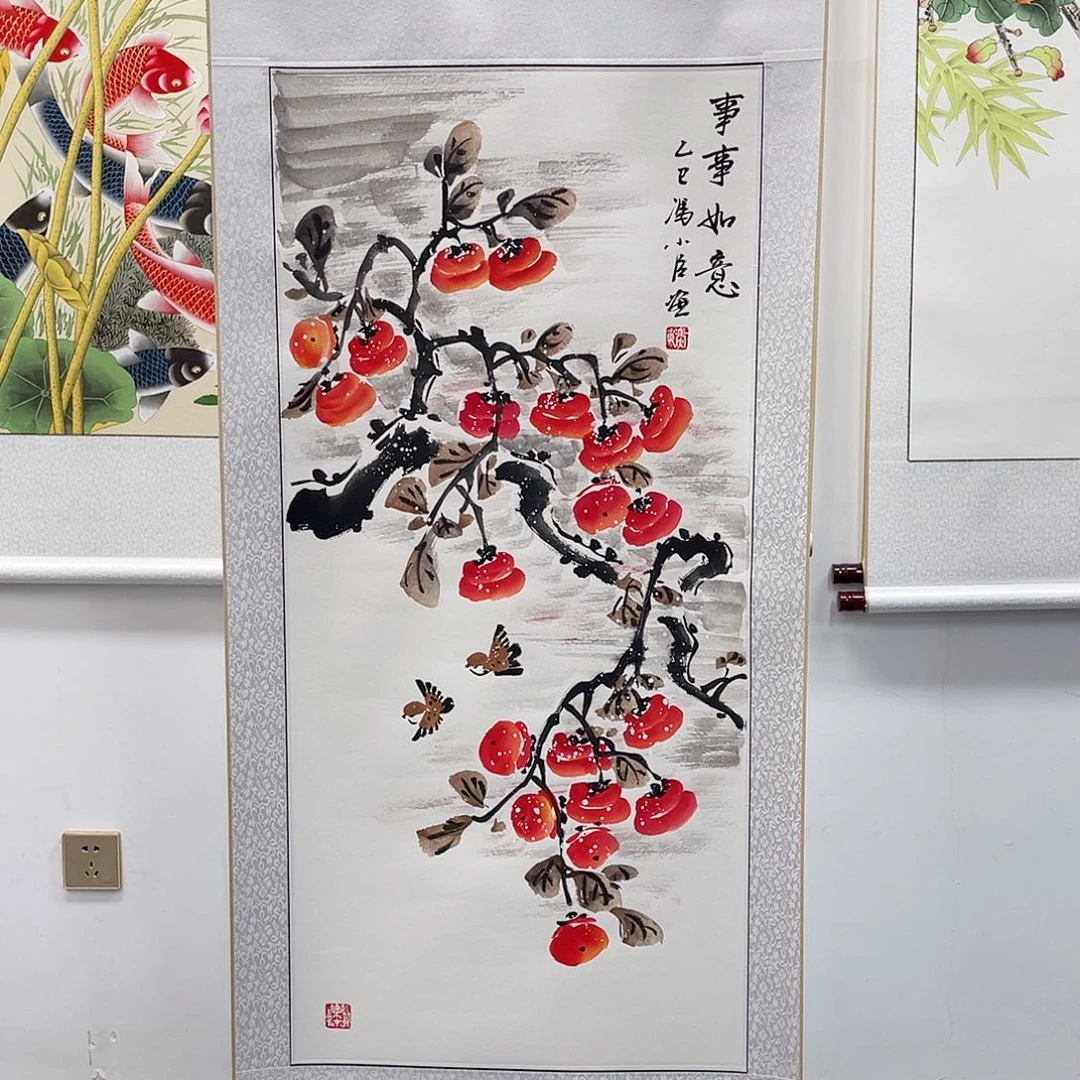 事事如意
乙巳冯小臣画